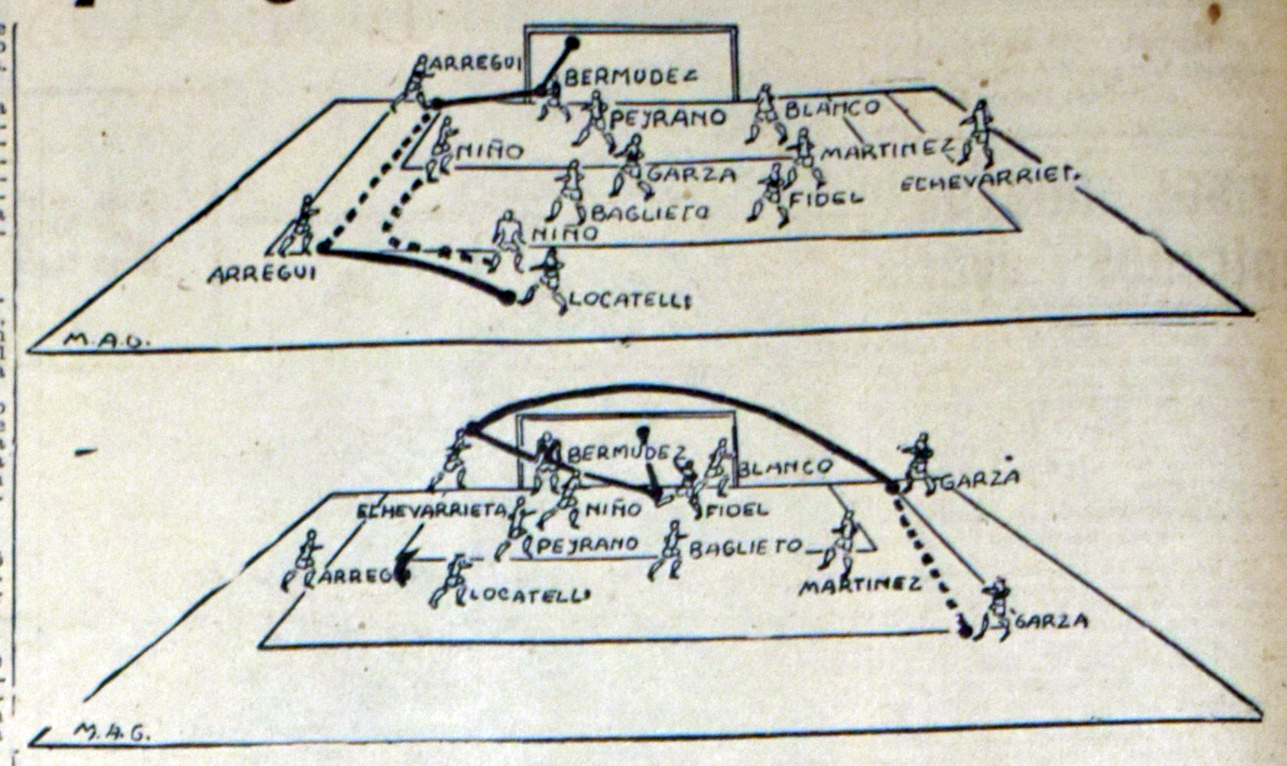 ARREGUI
BERMUDEZ
PEYRANO
BLANCO
NIÑO
MARTINEZ
GARZA
ECHEVARRIET.
BAGLIETO
FIDEL
NIÑO
ARREGUI
LOCATELLI
M.A.G.
BERMUDEZ
BLANCO
GARZA
ECHEVARRIETA
NIÑO
FIDEL
PEYRANO
BAGLIETO
ARREGUI
LOCATELLI
MARTINEZ
GARZA
M.A.G.